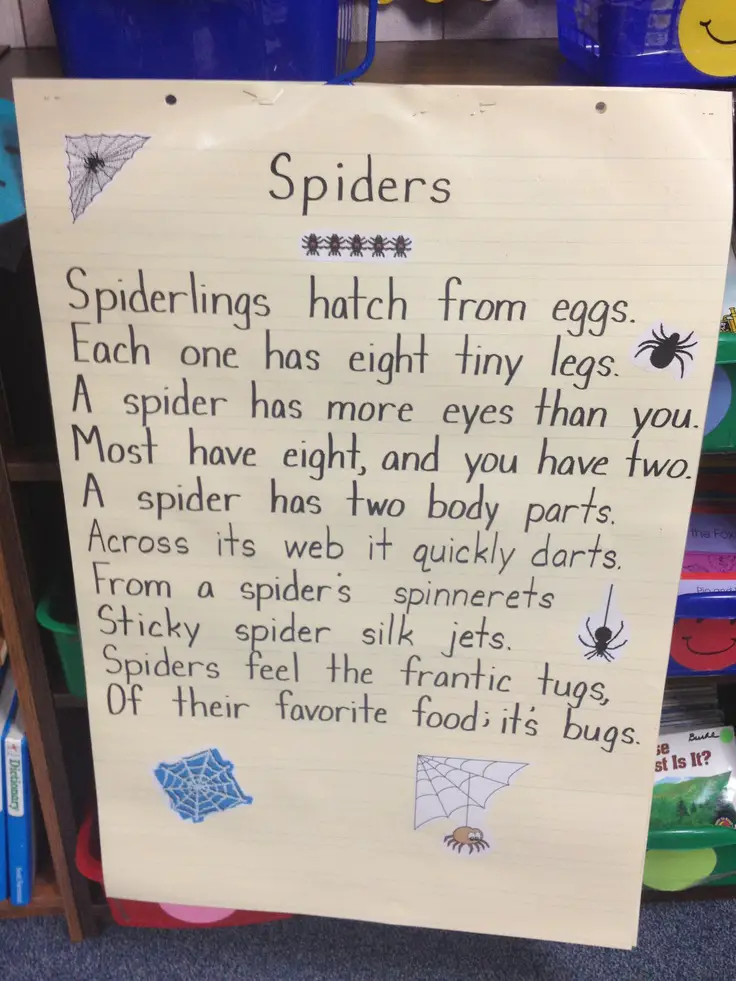 Spiders
Spiderlings hatch from eggs.
Each one has eight tiny legs.
A spider has more eyes than you.
Most have eight, and you have two.
A spider has two body parts.
Across its web it quickly darts.
From a spider's spinnerets
Sticky spider silk jets.
Spiders feel the frantic tugs,
Of their favorite food; it's bugs.
the Fox
Burke
st Is It?
Dictionary